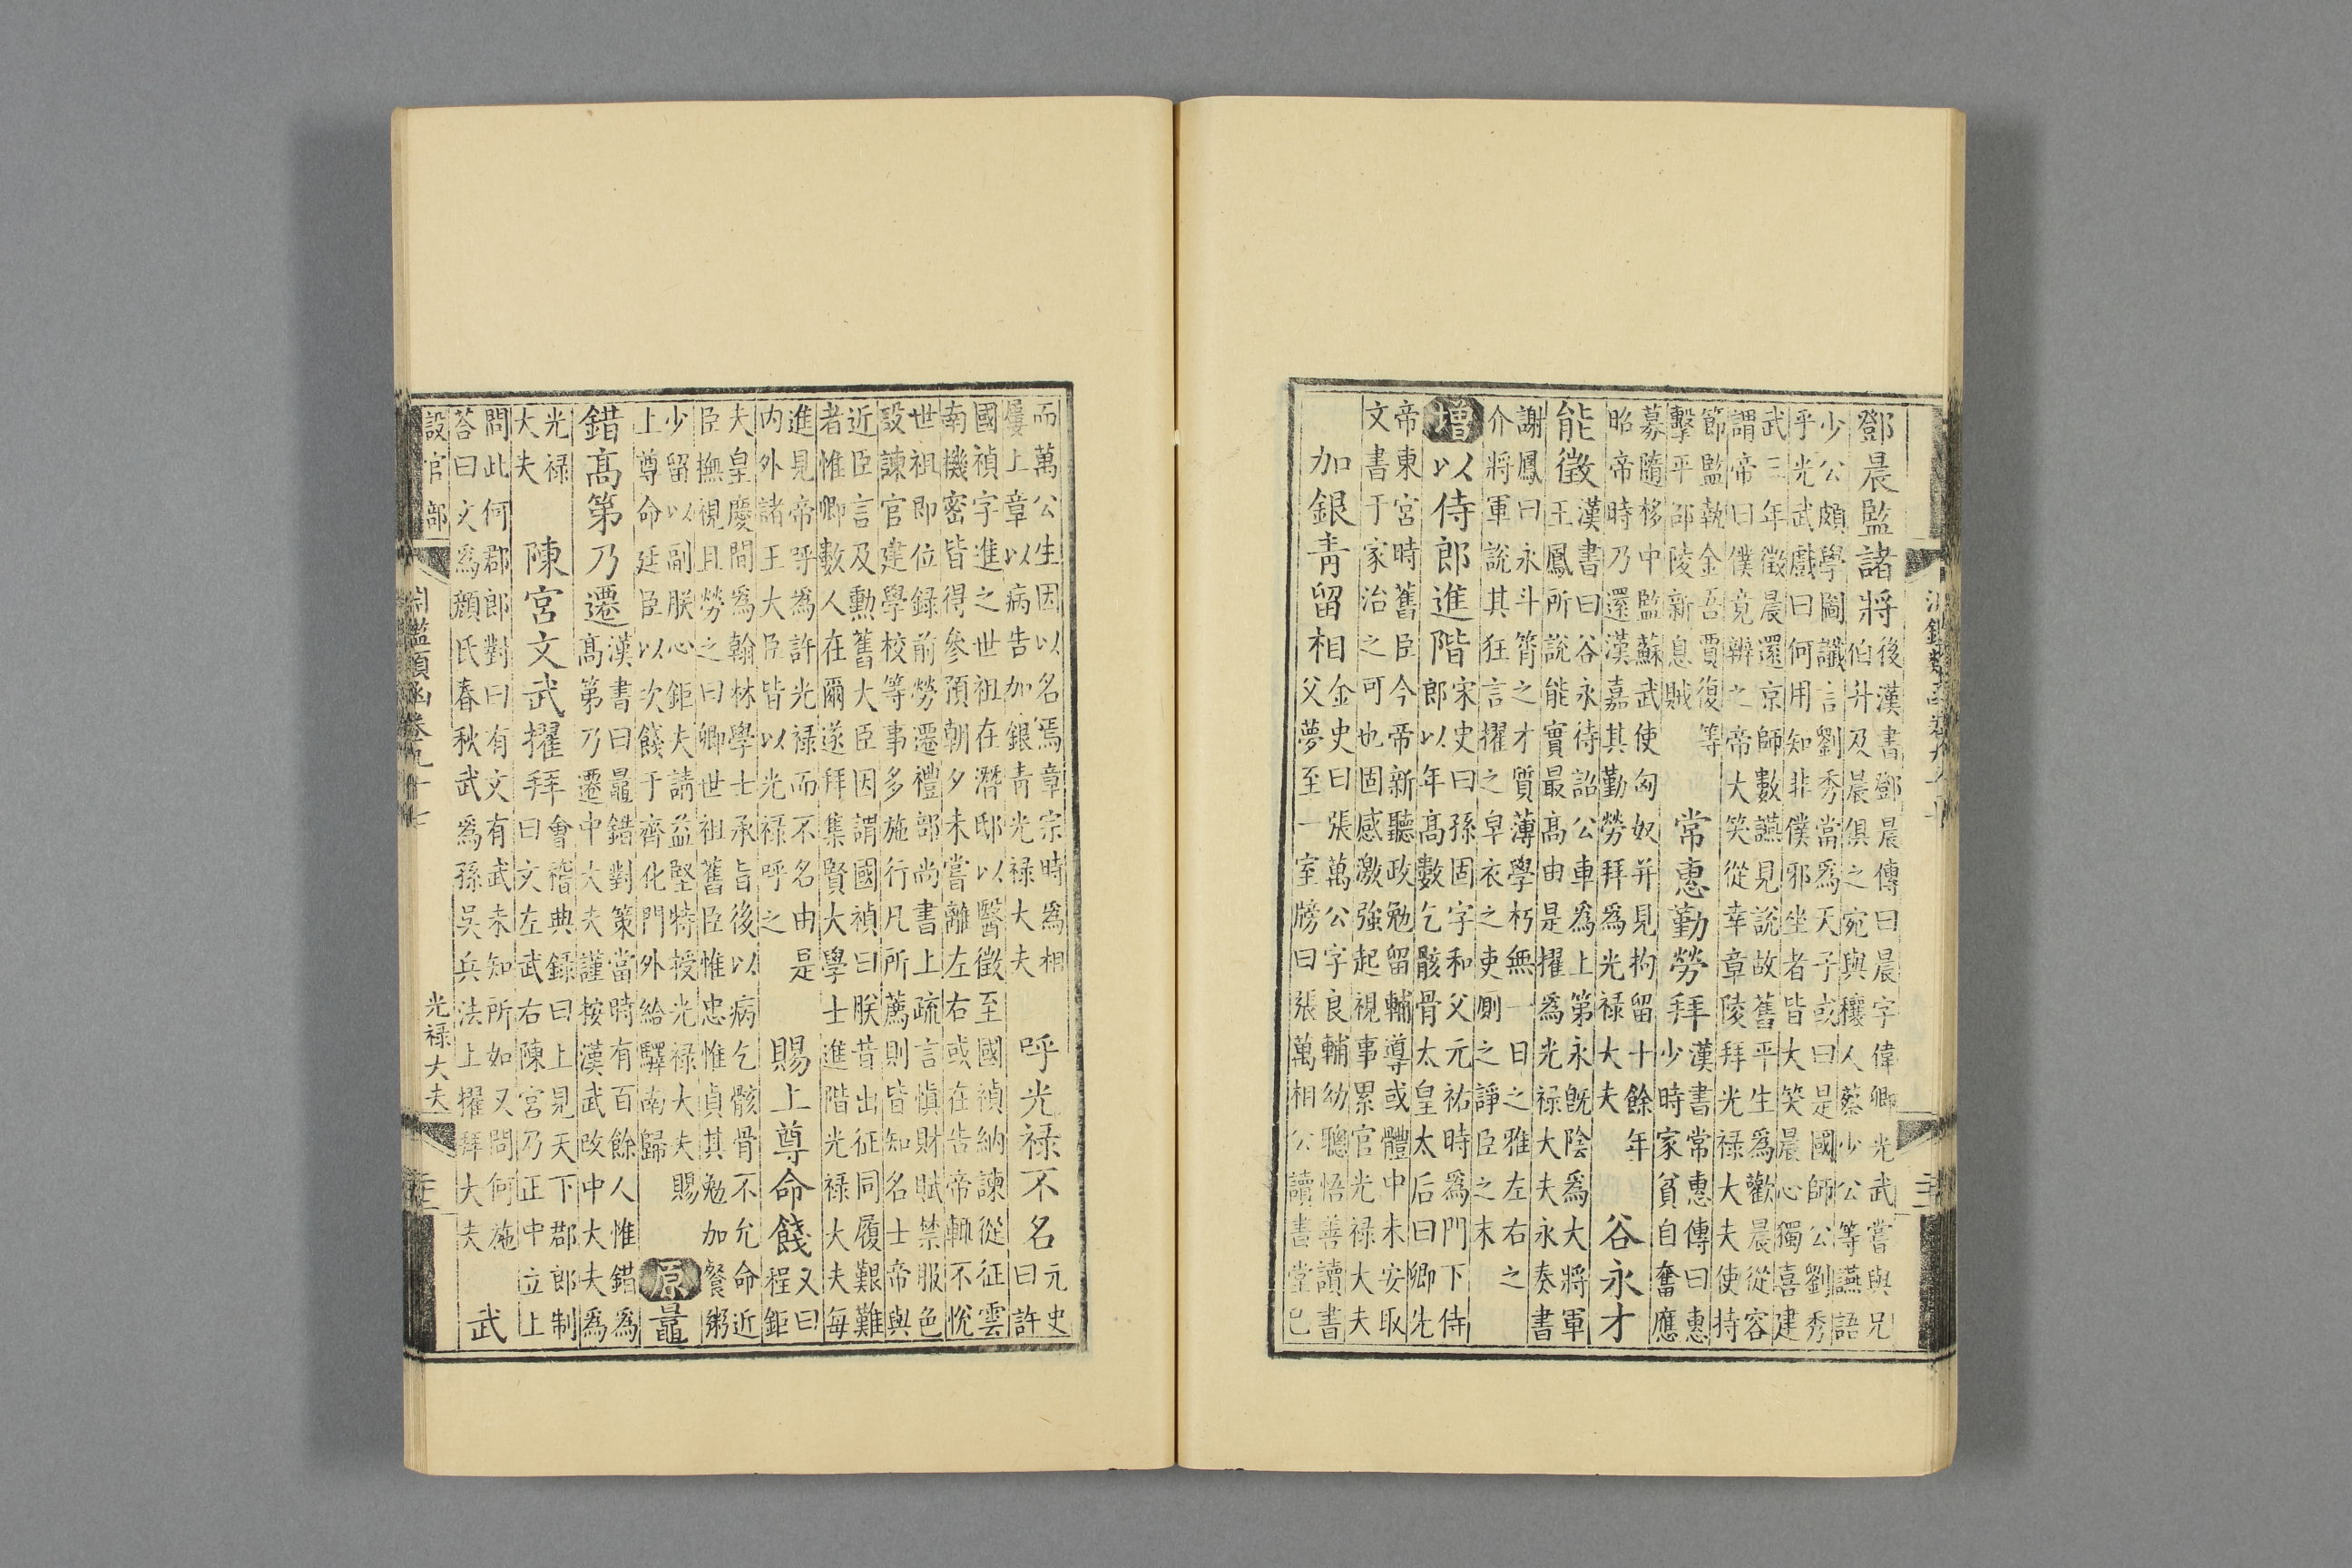 鄧晨監諸將
後漢書鄧晨傳曰晨字偉卿光武嘗與兄
伯升及晨俱之宛與穰人蔡少公等讌語
少公頗學圖讖言劉秀當為天子或曰是國師公劉秀
乎光武戲曰何用知非僕邪坐者皆大笑晨心獨喜建
武三年徵晨還京師數讌見說故舊平生為歡晨從容
謂帝曰僕竟辦之帝大笑從幸章陵拜光祿大夫使持
節監執金吾賈復等
擊平邵陵新息賊
常惠勤勞拜
漢書常惠傳曰惠
少時家貧自奮應
募隨栘中監蘇武使匈奴并見拘留十餘年
昭帝時乃還漢嘉其勤勞拜為光祿大夫
谷永才
能徵
漢書曰谷永待詔公車為上第永旣陰為大將軍
王鳳所說能實最高由是擢為光祿大夫永奏書
謝鳳曰永斗筲之才質薄學朽無一日之雅左右之
介將軍說其狂言擢之皁衣之吏厠之諍臣之末
增以侍郎進階
宋史曰孫固字和父元祐時為門下侍
郎以年高數乞骸骨太皇太后曰卿先
帝東宮時舊臣今帝新聽政勉留輔導或體中未安取
文書于家治之可也固感激強起視事累官光祿大夫
加銀青留相
金史曰張萬公字良輔幼聰悟善讀書
父夢至一室牓曰張萬相公讀書堂已
而萬公生因以名焉章宗時為相
屢上章以病告加銀青光祿大夫
呼光祿不名
元史
曰許
國禎字進之世祖在潛邸以醫徵至國禎納諫從征雲
南機密皆得參預朝夕未嘗離左右或在告帝輒不悅
世祖即位録前勞遷禮部尚書上疏言慎財賦禁服色
設諫官建學校等事多施行凡所薦則皆知名士帝與
近臣言及勳舊大臣因謂國禎曰朕昔出征同履艱難
者惟卿數人在爾遂拜集賢大學士進階光祿大夫每
進見帝呼為許光祿而不名由是
内外諸王大臣皆以光祿呼之
賜上尊命餞
又曰
程鉅
夫皇慶間為翰林學士承旨後以病乞骸骨不允命近
臣撫視且勞之曰卿世祖舊臣惟忠惟貞其勉加餐粥
少留以副朕心鉅夫請益堅特授光祿大夫賜
上尊命廷臣以次餞于齊化門外給驛南歸
原鼂
錯高第乃遷
漢書曰鼂錯對策當時有百餘人惟錯為
高第乃遷中大夫謹按漢武改中大夫為
光祿
大夫
陳宮文武擢拜
會稽典録曰上見天下郡郎制
曰文左武右陳宮乃正中立上
問此何郡郎對曰有文有武未知所如又問何施
荅曰文為顏氏春秋武為孫吳兵法上擢拜大夫
武
設官部
鑑類函卷九十七
光祿大夫